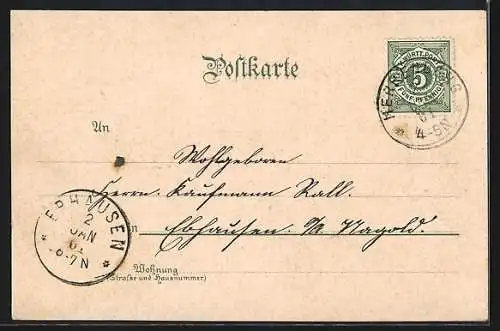 Postkarte
K. WÜRTT. POST
5
FÜNF PFENNIG
4-5N
An
Wohlgeboren
Herrn Kaufmann Rall.
in
Ebhausen. O/A Nagold.
EBHAUSEN
2
JAN
01
6-7N
Wohnung
(Straße und Hausnummer)